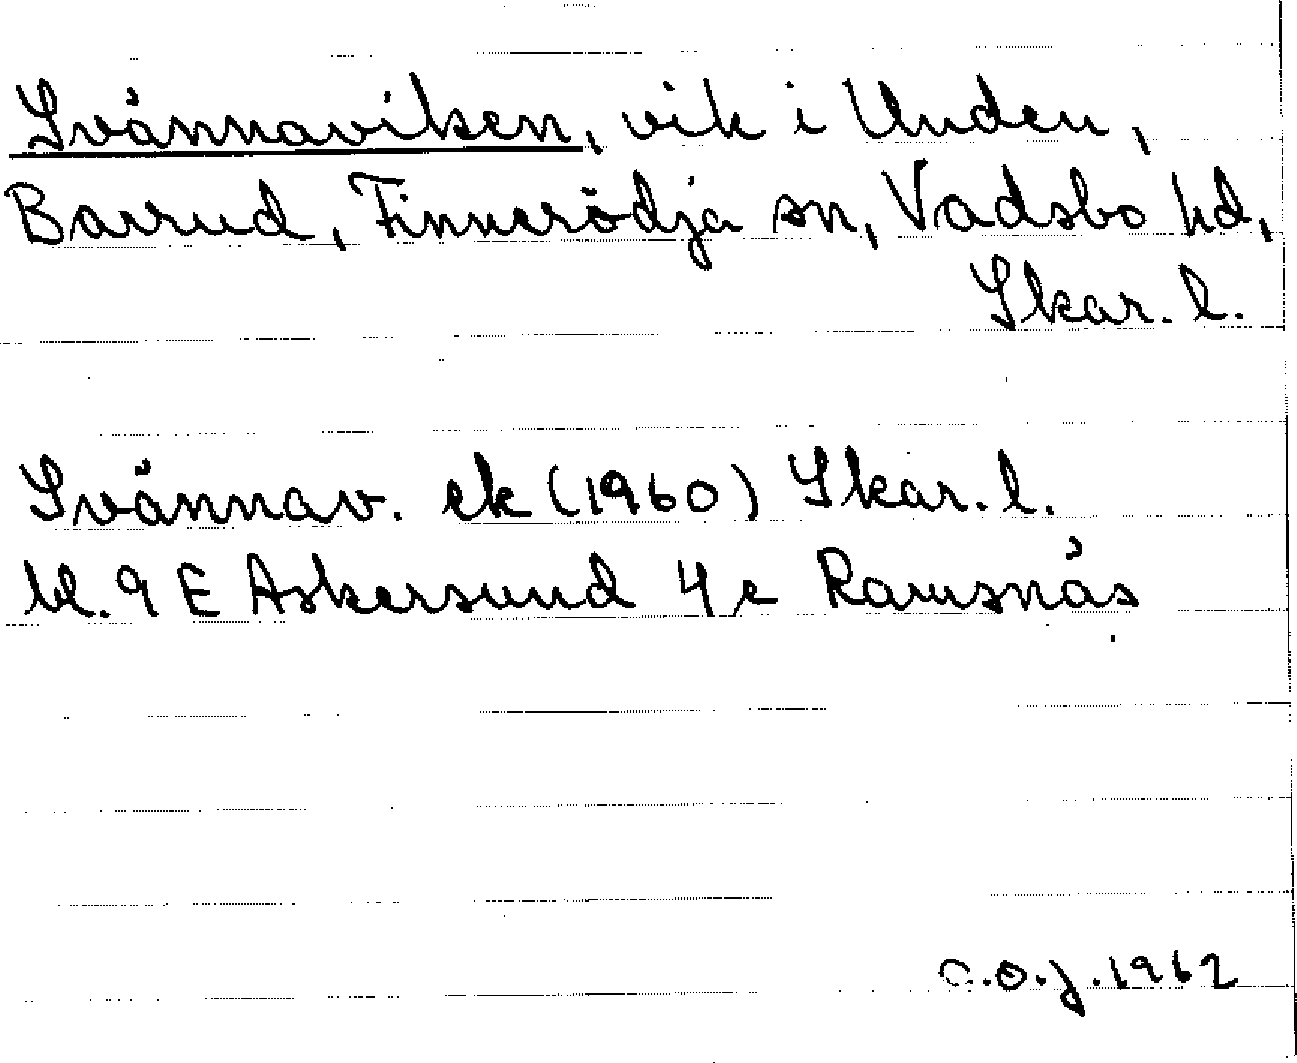 Svännaviken, vik i Unden,
Barrud, Finnerödja sn, Vadsbo hd,
Skar. l.
Svännav. ek (1960) Skar. l.
bl. 9 E Askersund 4 c Ramsnäs
C.O.J. 1962